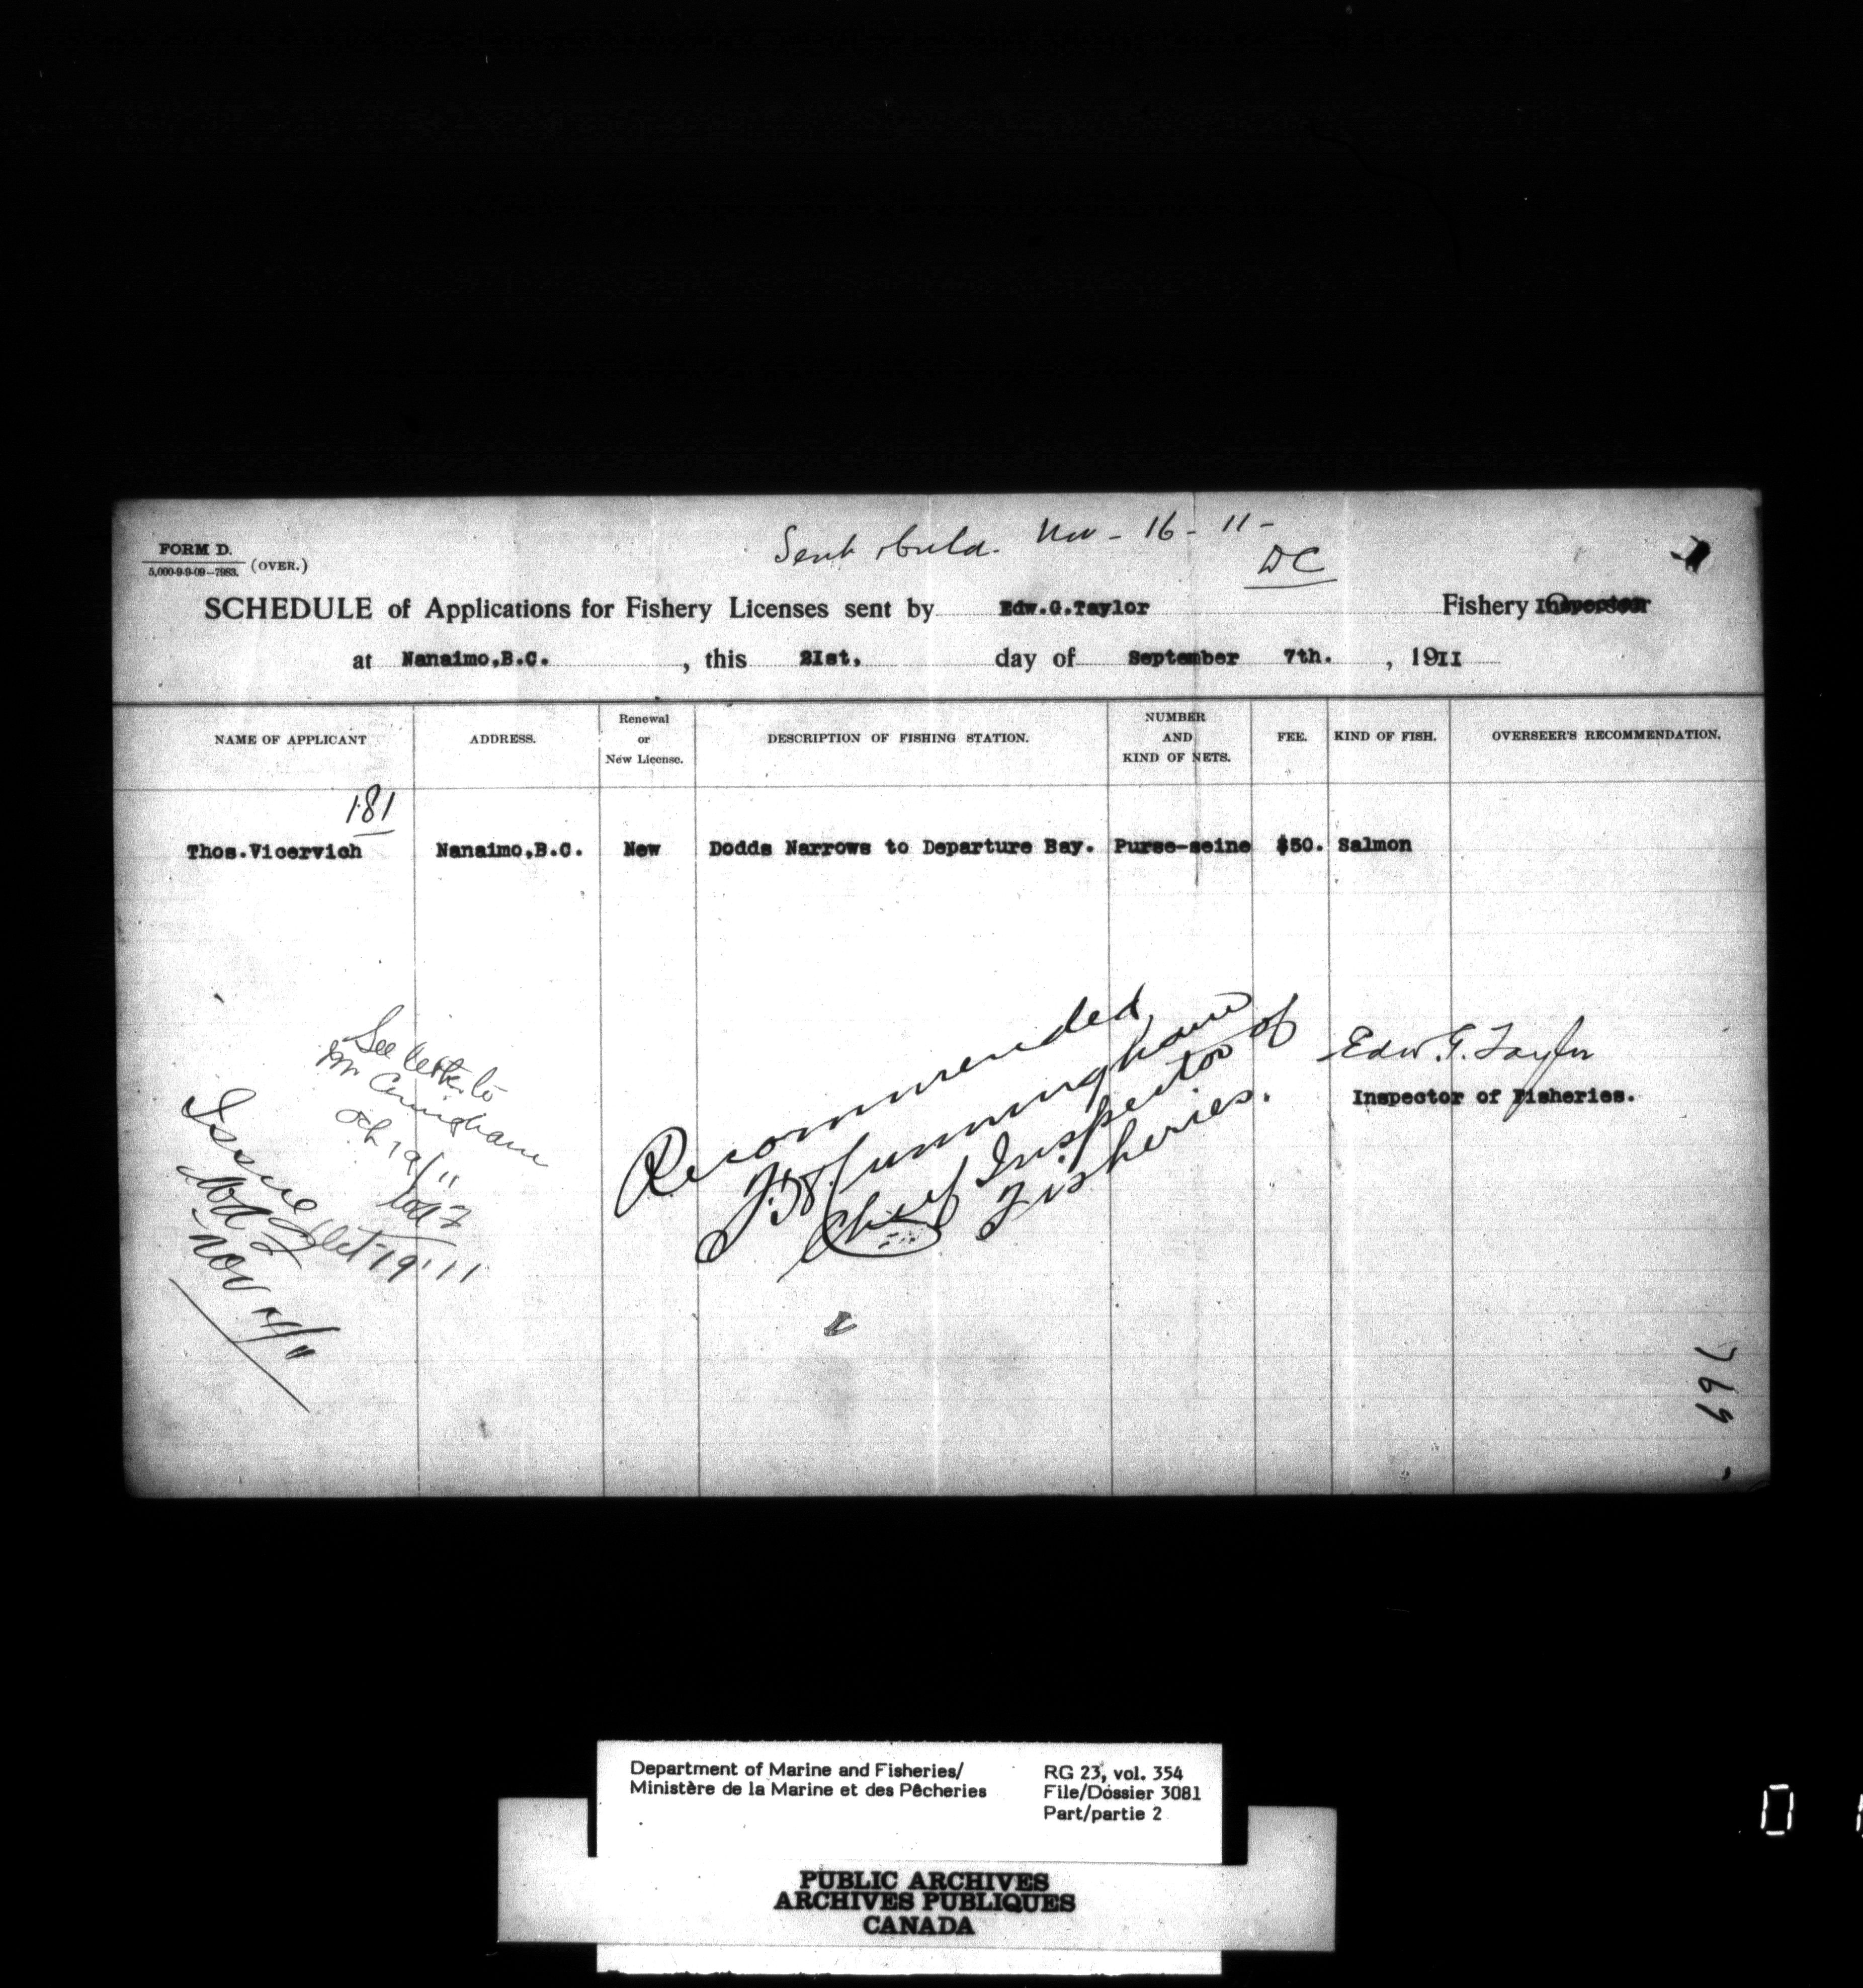 FORM D.
5,000-9-9-09—7983.
(OVER.)
Sent Nov - 16 - 11 -
DC
SCHEDULE of Applications for Fishery Licenses sent by Edw.G.Taylor Fishery Inspector
at Nanaimo,B.C. , this 2Ist, day of September 7th. , 19II
NAME OF APPLICANT
ADDRESS.
Renewal
or
New License.
DESCRIPTION OF FISHING STATION.
NUMBER
AND
KIND OF NETS.
FEE.
KIND OF FISH.
OVERSEER'S RECOMMENDATION.
181
Thos.Vicervich Nanaimo,B.C. New Dodds Narrows to Departure Bay. Purse-seine $50. Salmon
See letter to
Mr Cunningham
Oct 19/11
Issue
Oct 19 '11
Nov
Recommended,
F.H. Cunningham
Chief Inspector of
Fisheries.
Edw. G. Taylor
Inspector of Fisheries.
769
Department of Marine and Fisheries/
Ministère de la Marine et des Pêcheries
RG 23, vol. 354
File/Dossier 3081
Part/partie 2
PUBLIC ARCHIVES
ARCHIVES PUBLIQUES
CANADA